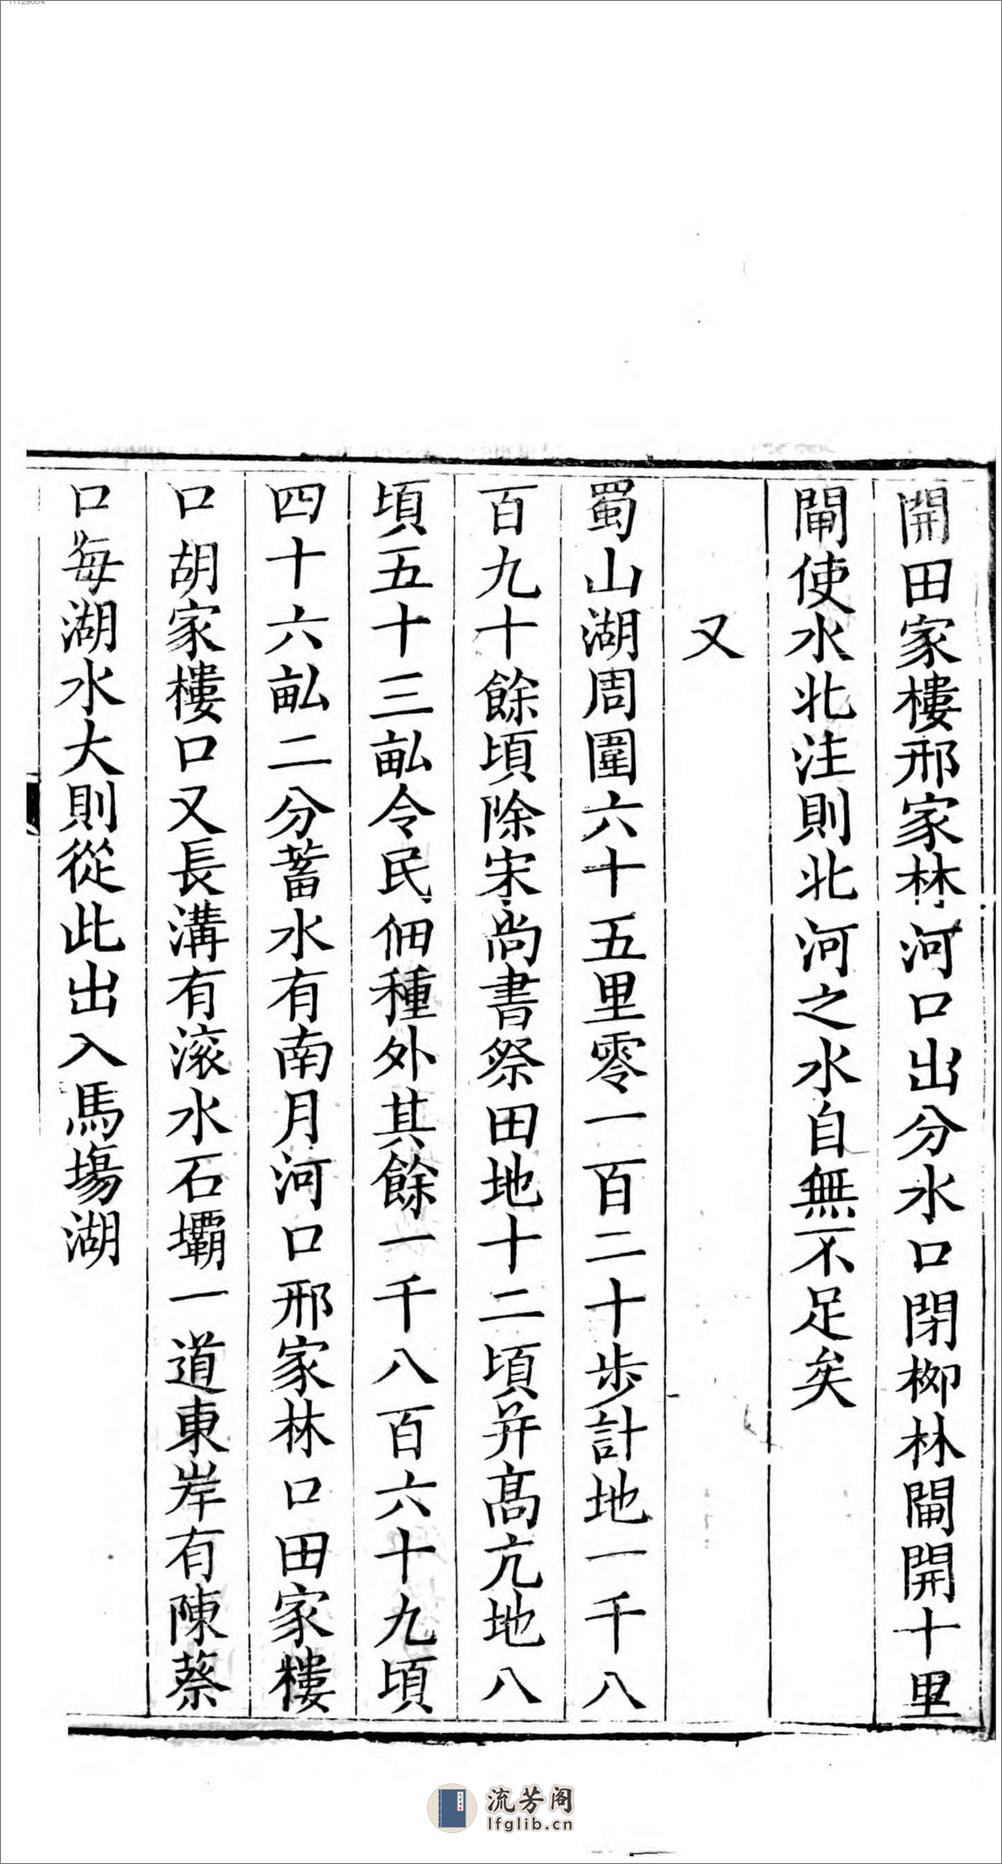 開田家樓邢家林河口出分水口閉柳林閘開十里
閘使水北注則北河之水自無不足矣
又
蜀山湖周圍六十五里零一百二十步計地一千八
百九十餘頃除宋尚書祭田地十二頃并高亢地八
頃五十三畝令民佃種外其餘一千八百六十九頃
四十六畝二分蓄水有南月河口邢家林口田家樓
口胡家樓口又長溝有滾水石壩一道東岸有陳蔡
口每湖水大則從此出入馬塲湖
流芳阁
lfglib.cn